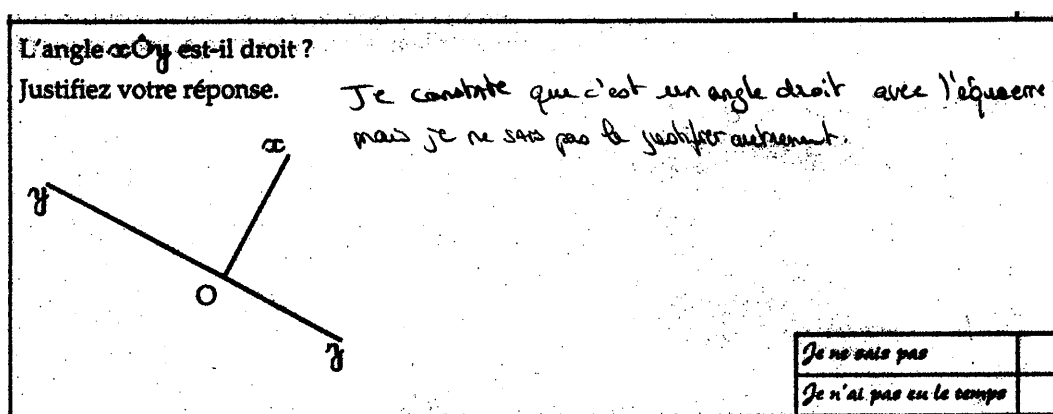 L'angle xÔy est-il droit ?
Justifiez votre réponse.
Je constate que c'est un angle droit avec l'équerre
mais je ne sais pas le justifier autrement.
x
y
O
y
Je ne sais pas
Je n'ai pas eu le temps